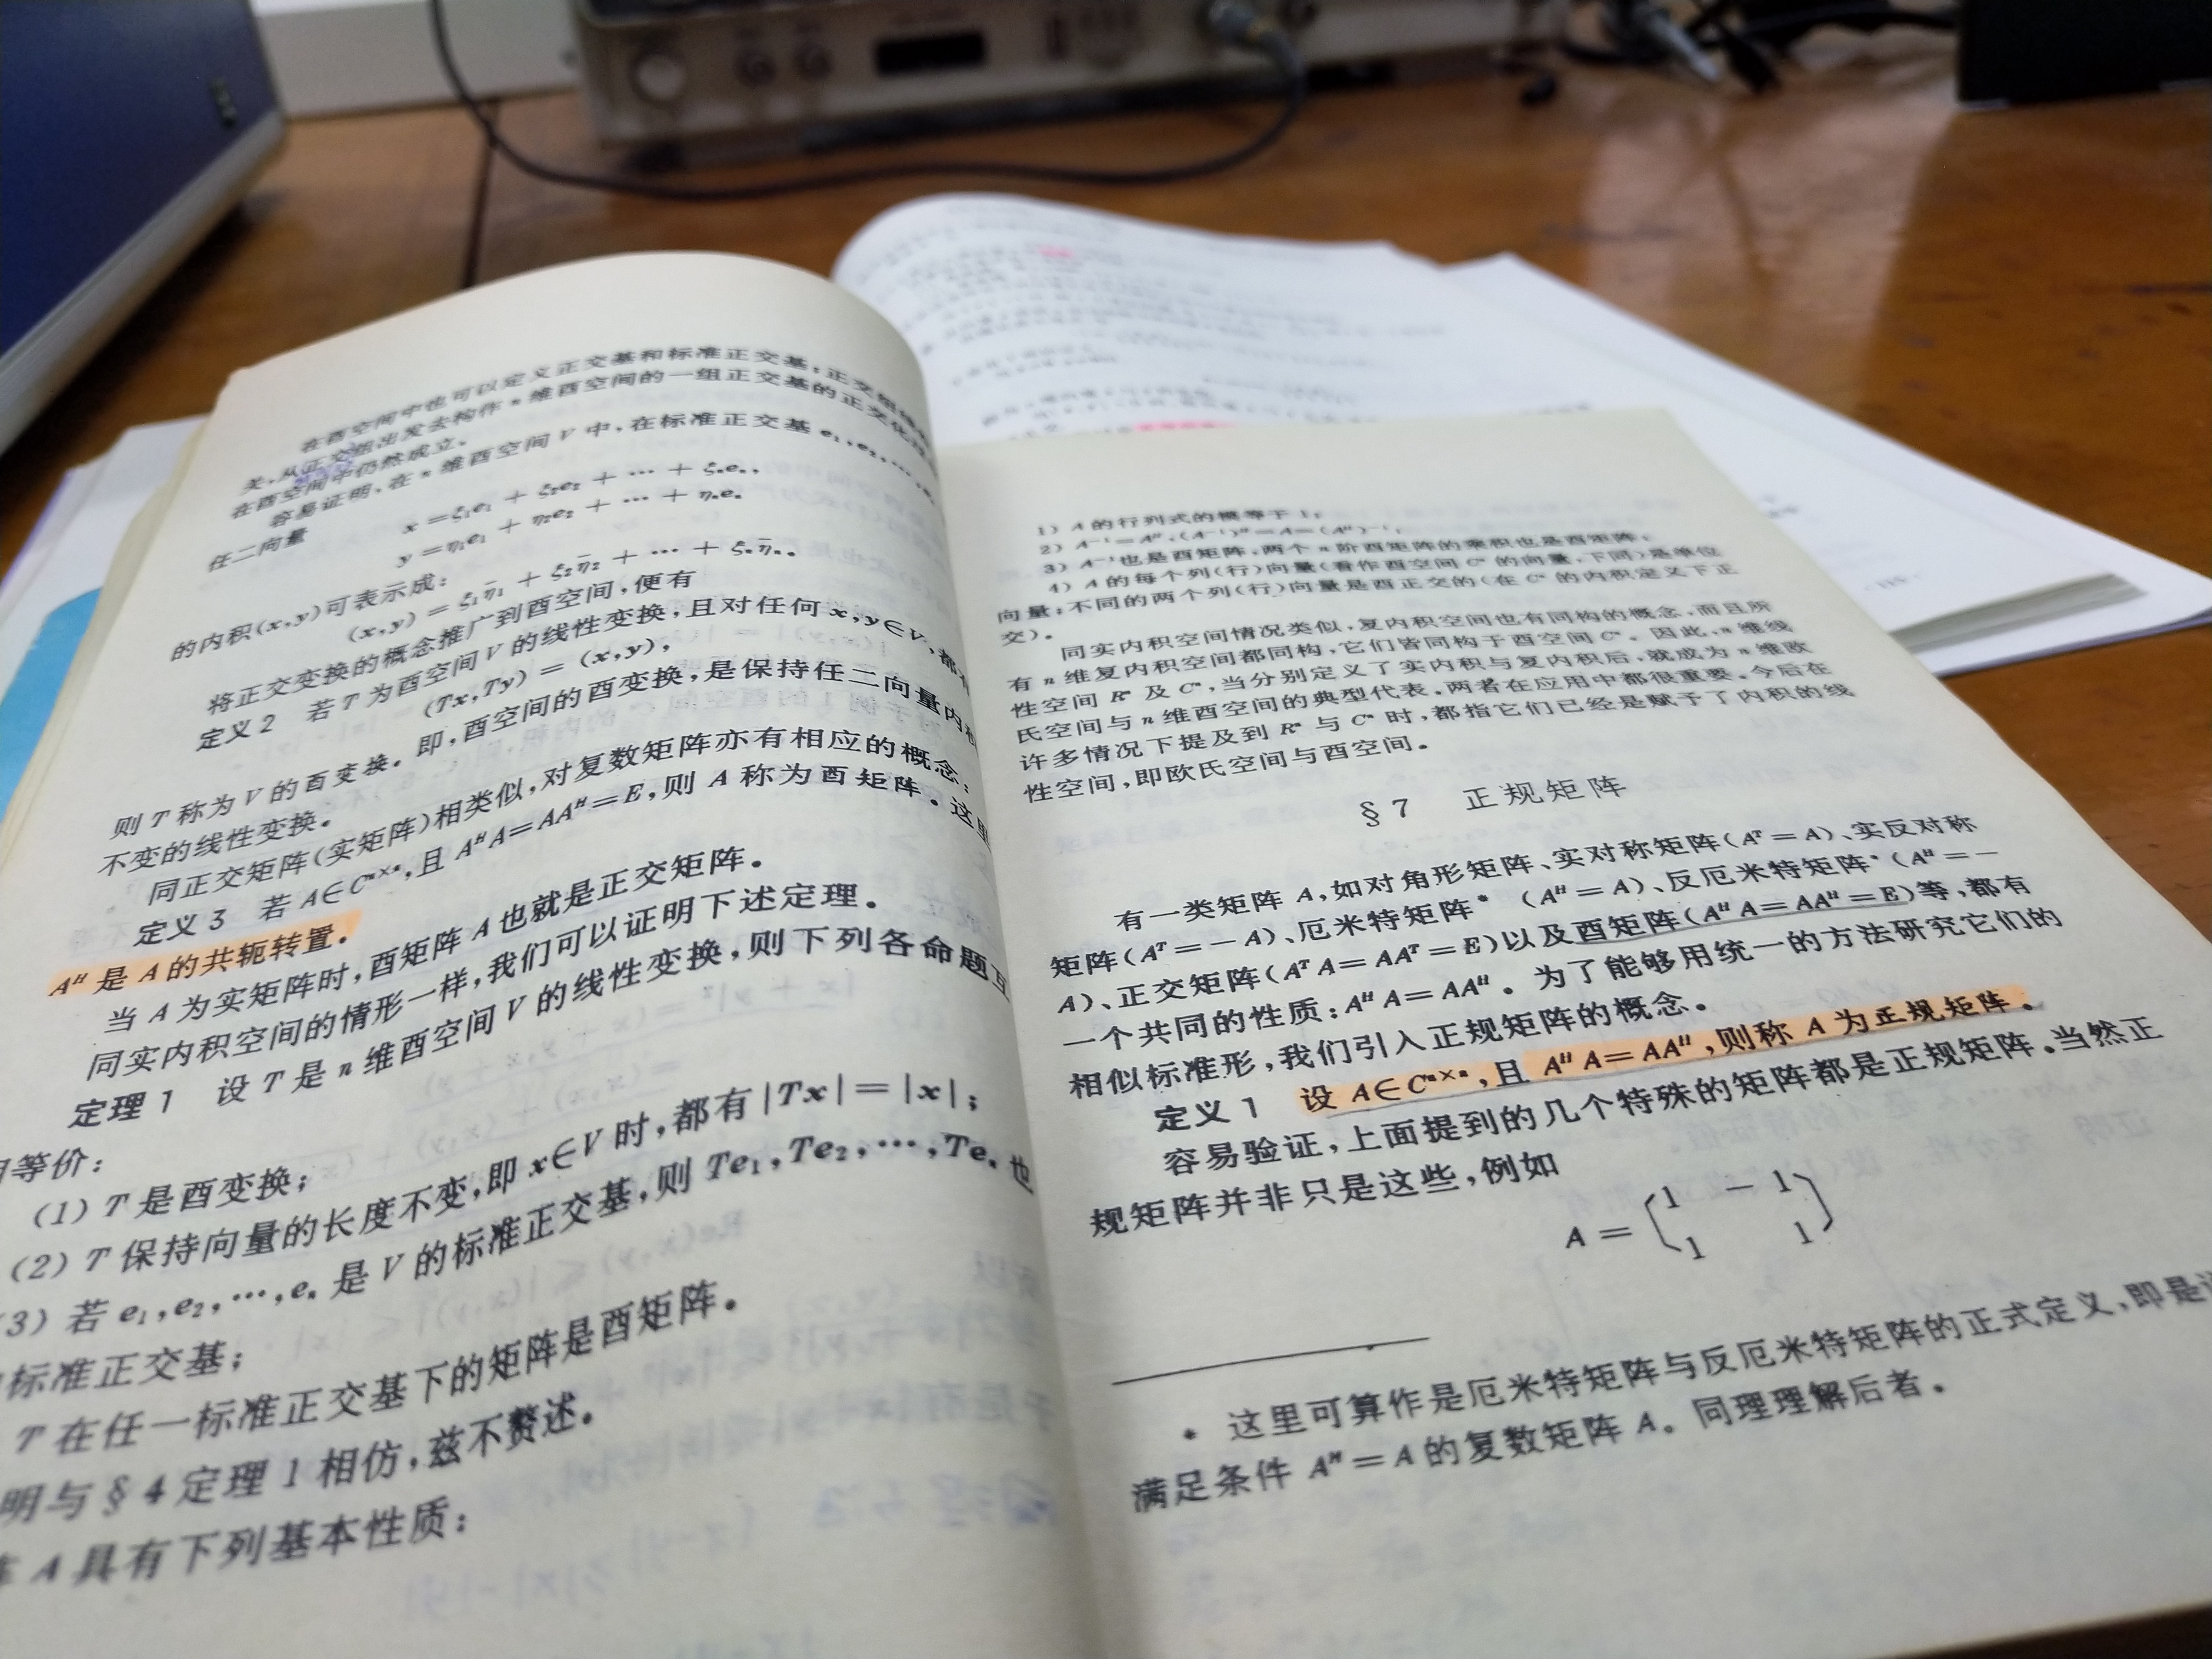 在酉空间中也可以定义正交基和标准正交基;正交组线性
关,从正交组出发去构作 n 维酉空间的一组正交基的正交化
在酉空间中仍然成立。
容易证明,在 n 维酉空间 V 中,在标准正交基 e₁,e₂,…,e
任二向量
x = ξ₁e₁ + ξ₂e₂ + … + ξₙeₙ,
y = η₁e₁ + η₂e₂ + … + ηₙeₙ
的内积(x,y)可表示成:
(x,y) = ξ₁η̄₁ + ξ₂η̄₂ + … + ξₙη̄ₙ.
将正交变换的概念推广到酉空间,便有
定义 2 若 T 为酉空间 V 的线性变换,且对任何 x,y∈V,都有
(Tx,Ty) = (x,y),
则 T 称为 V 的酉变换。即,酉空间的酉变换,是保持任二向量内积
不变的线性变换。
同正交矩阵(实矩阵)相类似,对复数矩阵亦有相应的概念:
定义 3 若 A∈Cⁿˣⁿ,且 AᴴA=AAᴴ=E,则 A 称为酉矩阵。这里
Aᴴ 是 A 的共轭转置。
当 A 为实矩阵时,酉矩阵 A 也就是正交矩阵。
同实内积空间的情形一样,我们可以证明下述定理。
定理 1 设 T 是 n 维酉空间 V 的线性变换,则下列各命题互
相等价:
(1) T 是酉变换;
(2) T 保持向量的长度不变,即 x∈V 时,都有|Tx|=|x|;
(3) 若 e₁,e₂,…,eₙ 是 V 的标准正交基,则 Te₁,Te₂,…,Teₙ 也
标准正交基;
T 在任一标准正交基下的矩阵是酉矩阵。
明与 § 4 定理 1 相仿,兹不赘述。
A 具有下列基本性质:
1) A 的行列式的模等于 1;
2) A⁻¹=Aᴴ,(A⁻¹)ᴴ=A=(Aᴴ)⁻¹;
3) A⁻¹也是酉矩阵,两个 n 阶酉矩阵的乘积也是酉矩阵;
4) A 的每个列(行)向量(看作酉空间 Cⁿ 的向量,下同)是单位
向量;不同的两个列(行)向量是酉正交的(在 Cⁿ 的内积定义下正
交)。
同实内积空间情况类似,复内积空间也有同构的概念,而且所
有 n 维复内积空间都同构,它们皆同构于酉空间 Cⁿ。因此,n 维线
性空间 Rⁿ 及 Cⁿ,当分别定义了实内积与复内积后,就成为 n 维欧
氏空间与 n 维酉空间的典型代表。两者在应用中都很重要。今后在
许多情况下提及到 Rⁿ 与 Cⁿ 时,都指它们已经是赋予了内积的线
性空间,即欧氏空间与酉空间。
§ 7 正规矩阵
有一类矩阵 A,如对角形矩阵、实对称矩阵(Aᵀ=A)、实反对称
矩阵(Aᵀ=-A)、厄米特矩阵* (Aᴴ=A)、反厄米特矩阵* (Aᴴ=-
A)、正交矩阵(AᵀA=AAᵀ=E)以及酉矩阵(AᴴA=AAᴴ=E)等,都有
一个共同的性质:AᴴA=AAᴴ。为了能够用统一的方法研究它们的
相似标准形,我们引入正规矩阵的概念。
定义 1 设 A∈Cⁿˣⁿ,且 AᴴA=AAᴴ,则称 A 为正规矩阵。
容易验证,上面提到的几个特殊的矩阵都是正规矩阵。当然正
规矩阵并非只是这些,例如
A = (1 -1
1 1)
* 这里可算作是厄米特矩阵与反厄米特矩阵的正式定义,即是
满足条件 Aᴴ=A 的复数矩阵 A。同理理解后者。